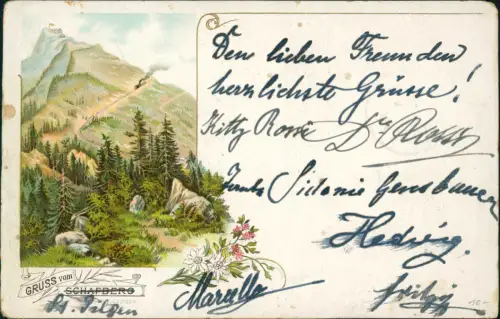 Den lieben Freunden
herzlichste Grüsse!
Kitty Rosé Dr Ross
Sidonie Gensbauer
Hedwig.
Marcella Fritzi
GRUSS vom SCHAFBERG
St. Gilgen